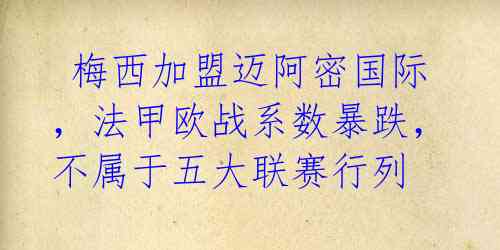 梅西加盟迈阿密国际
，法甲欧战系数暴跌，
不属于五大联赛行列